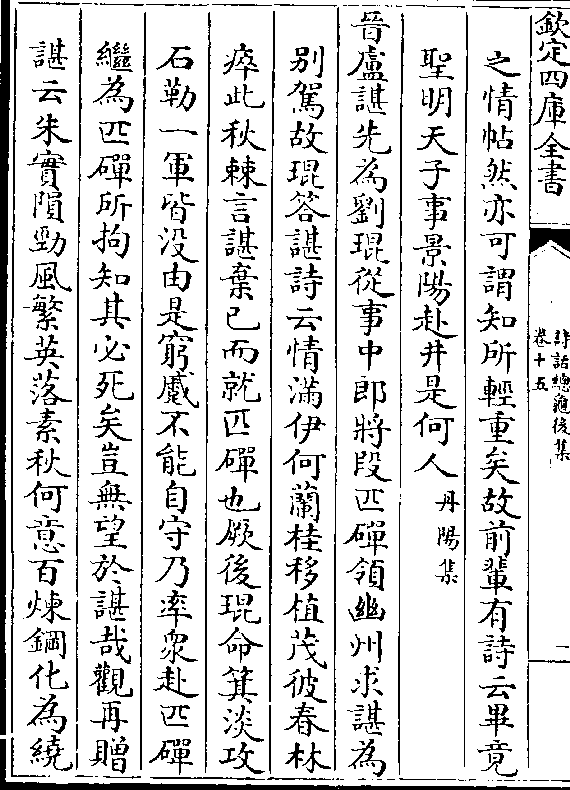 欽定四庫全書
詩話總龜後集
卷十五
二
之情帖然亦可謂知所輕重矣故前輩有詩云畢竟
聖明天子事景陽赴井是何人丹陽集
晉盧諶先為劉琨從事中郎將段匹磾領幽州求諶為
别駕故琨答諶詩云情滿伊何蘭桂移植茂彼春林
瘁此秋棘言諶棄已而就匹磾也厥後琨命箕淡攻
石勒一軍皆没由是窮蹙不能自守乃率衆赴匹磾
繼為匹磾所拘知其必死矣豈無望於諶哉觀再贈
諶云朱實隕勁風繁英落素秋何意百煉鋼化為繞